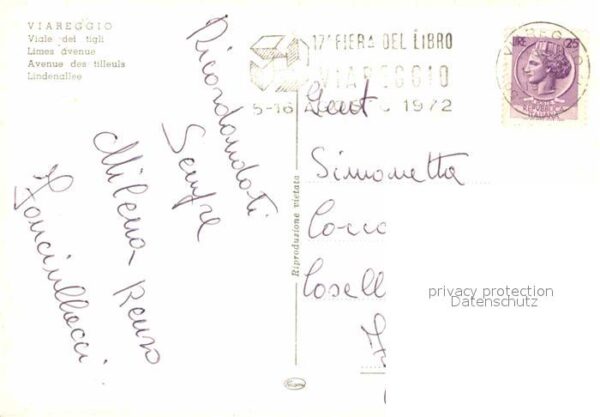 VIAREGGIO
Viale dei tigli
Limes avenue
Avenue des tilleuls
Lindenallee
Ricordandoti
Sempre
Milena Renzo
Riproduzione vietata
17ª FIERA DEL LIBRO
VIAREGGIO
5-16 AGOSTO 1972
LIRE 25
REPUBBLICA
ITALIANA
VIAREGGIO
Gent
Simonetta
privacy protection
Datenschutz